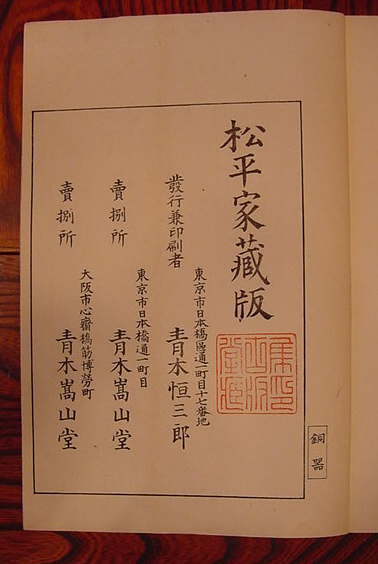 松平家藏版
發行兼印刷者
東京市日本橋區通一町目十七番地
青木恒三郎
賣捌所
東京市日本橋通一町目
青木嵩山堂
賣捌所
大阪市心齋橋筋博勞町
青木嵩山堂
銅器